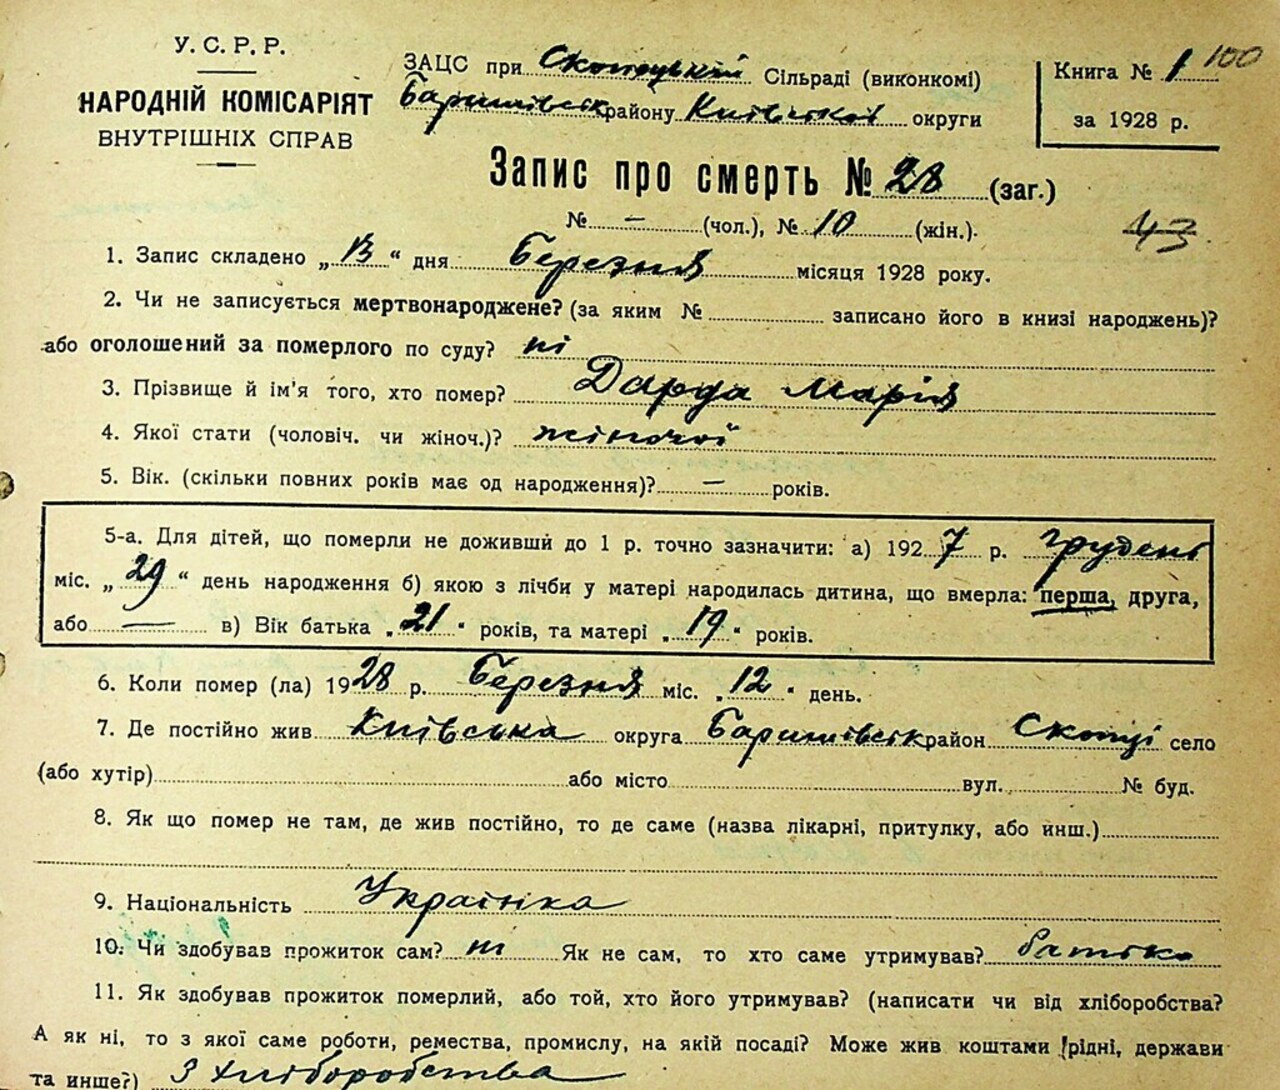 У. С. Р. Р.
НАРОДНІЙ КОМІСАРІЯТ
ВНУТРІШНІХ СПРАВ
ЗАЦС при Скопецькій Сільраді (виконкомі)
Баришівськ району Київської округи
Книга № 1 100
за 1928 р.
Запис про смерть № 28 (заг.)
№ — (чол.), № 10 (жін.).
43
1. Запис складено „13“ дня Березня місяця 1928 року.
2. Чи не записується мертвонароджене? (за яким № записано його в книзі народжень)?
або оголошений за померлого по суду? ні
3. Прізвище й ім'я того, хто помер? Дарда Марія
4. Якої стати (чоловіч. чи жіноч.)? жіночої
5. Вік. (скільки повних років має од народження)? — років.
5-а. Для дітей, що померли не доживші до 1 р. точно зазначити: а) 1927 р. грудень
міс. „29“ день народження б) якою з лічби у матері народилась дитина, що вмерла: перша, друга,
або — в) Вік батька „21“ років, та матері „19“ років.
6. Коли помер (ла) 1928 р. Березня міс. „12“ день.
7. Де постійно жив Київська округа Баришівськ район Скопці село
(або хутір) або місто вул. № буд.
8. Як що помер не там, де жив постійно, то де саме (назва лікарні, притулку, або инш.)
9. Національність Українка
10. Чи здобував прожиток сам? ні Як не сам, то хто саме утримував? батько
11. Як здобував прожиток померлий, або той, хто його утримував? (написати чи від хліборобства?
А як ні, то з якої саме роботи, ремества, промислу, на якій посаді? Може жив коштами (рідні, держави
та инше?) З хліборобства